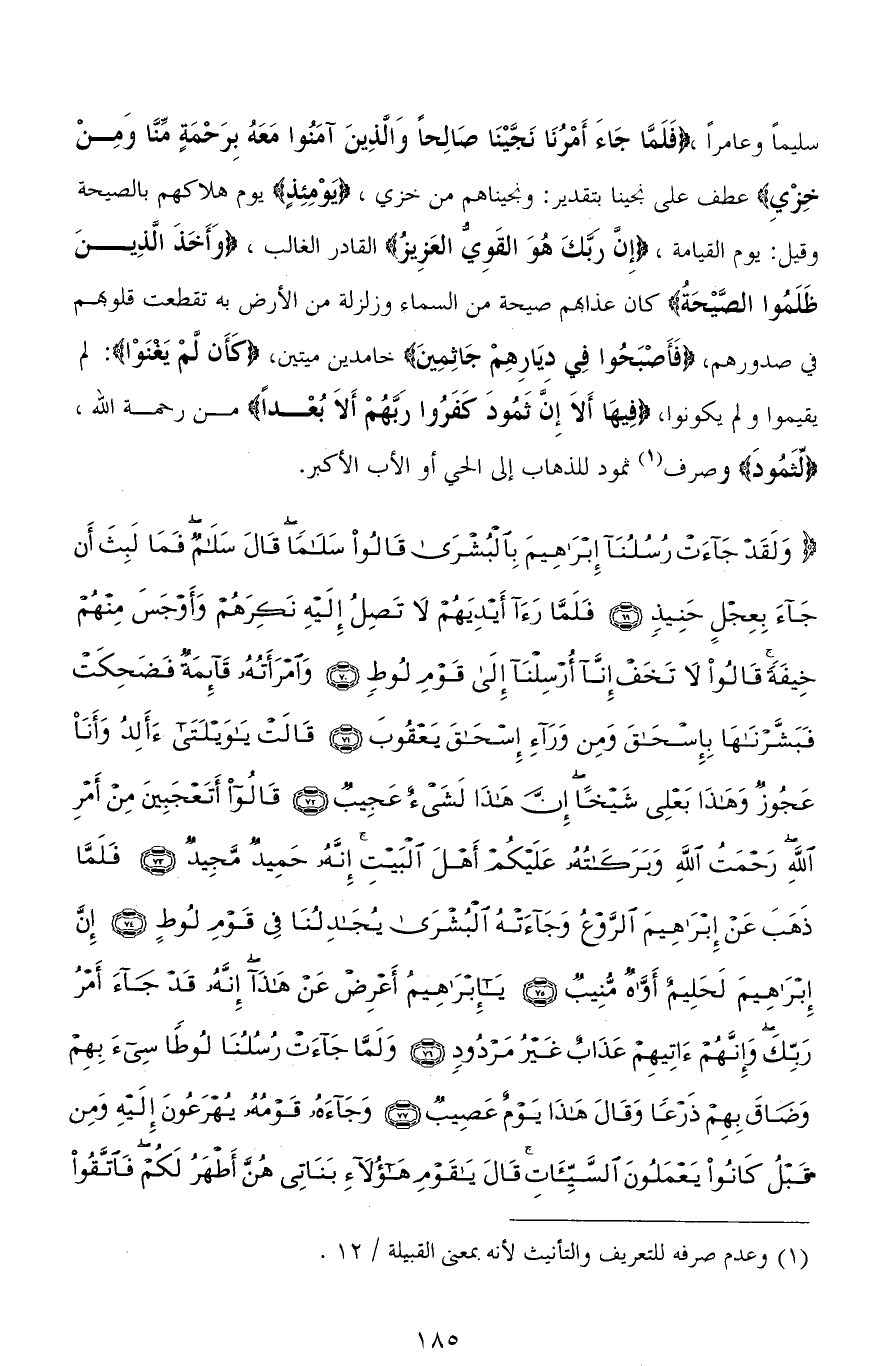 سليماً وعامراً ،﴿فَلَمَّا جَاءَ أَمْرُنَا نَجَّيْنَا صَالِحاً وَالَّذِينَ آمَنُوا مَعَهُ بِرَحْمَةٍ مِّنَّا وَمِــنْ
خِزْيِ﴾ عطف على نجينا بتقدير: ونجيناهم من خزي ، ﴿يَوْمِئِذٍ﴾ يوم هلاكهم بالصيحة
وقيل: يوم القيامة ، ﴿إِنَّ رَبَّكَ هُوَ القَوِيُّ العَزِيزُ﴾ القادر الغالب ، ﴿وَأَخَذَ الَّذِيــنَ
ظَلَمُوا الصَّيْحَةُ﴾ كان عذابهم صيحة من السماء وزلزلة من الأرض به تقطعت قلوبهم
في صدورهم، ﴿فَأَصْبَحُوا فِي دِيَارِهِمْ جَاثِمِينَ﴾ خامدين ميتين، ﴿كَأَن لَّمْ يَغْنَوْا﴾: لم
يقيموا و لم يكونوا، ﴿فِيهَا أَلاَ إِنَّ ثَمُودَ كَفَرُوا رَبَّهُمْ أَلاَ بُعْــداً﴾ مــن رحمــة الله ،
﴿لِّثَمُودَ﴾ وصرف(١) ثمود للذهاب إلى الحي أو الأب الأكبر.
۞ وَلَقَدْ جَآءَتْ رُسُلُنَآ إِبْرَٰهِيمَ بِٱلْبُشْرَىٰ قَالُوا۟ سَلَٰمًا ۖ قَالَ سَلَٰمٌ ۖ فَمَا لَبِثَ أَن
جَآءَ بِعِجْلٍ حَنِيذٍ ٦٩ فَلَمَّا رَءَآ أَيْدِيَهُمْ لَا تَصِلُ إِلَيْهِ نَكِرَهُمْ وَأَوْجَسَ مِنْهُمْ
خِيفَةً ۚ قَالُوا۟ لَا تَخَفْ إِنَّآ أُرْسِلْنَآ إِلَىٰ قَوْمِ لُوطٍ ٧٠ وَٱمْرَأَتُهُۥ قَآئِمَةٌ فَضَحِكَتْ
فَبَشَّرْنَٰهَا بِإِسْحَٰقَ وَمِن وَرَآءِ إِسْحَٰقَ يَعْقُوبَ ٧١ قَالَتْ يَٰوَيْلَتَىٰٓ ءَأَلِدُ وَأَنَا۠
عَجُوزٌ وَهَٰذَا بَعْلِى شَيْخًا ۖ إِنَّ هَٰذَا لَشَىْءٌ عَجِيبٌ ٧٢ قَالُوٓا۟ أَتَعْجَبِينَ مِنْ أَمْرِ
ٱللَّهِ ۖ رَحْمَتُ ٱللَّهِ وَبَرَكَٰتُهُۥ عَلَيْكُمْ أَهْلَ ٱلْبَيْتِ ۚ إِنَّهُۥ حَمِيدٌ مَّجِيدٌ ٧٣ فَلَمَّا
ذَهَبَ عَنْ إِبْرَٰهِيمَ ٱلرَّوْعُ وَجَآءَتْهُ ٱلْبُشْرَىٰ يُجَٰدِلُنَا فِى قَوْمِ لُوطٍ ٧٤ إِنَّ
إِبْرَٰهِيمَ لَحَلِيمٌ أَوَّٰهٌ مُّنِيبٌ ٧٥ يَٰٓإِبْرَٰهِيمُ أَعْرِضْ عَنْ هَٰذَآ ۖ إِنَّهُۥ قَدْ جَآءَ أَمْرُ
رَبِّكَ ۖ وَإِنَّهُمْ ءَاتِيهِمْ عَذَابٌ غَيْرُ مَرْدُودٍ ٧٦ وَلَمَّا جَآءَتْ رُسُلُنَا لُوطًا سِىٓءَ بِهِمْ
وَضَاقَ بِهِمْ ذَرْعًا وَقَالَ هَٰذَا يَوْمٌ عَصِيبٌ ٧٧ وَجَآءَهُۥ قَوْمُهُۥ يُهْرَعُونَ إِلَيْهِ وَمِن
قَبْلُ كَانُوا۟ يَعْمَلُونَ ٱلسَّيِّـَٔاتِ ۚ قَالَ يَٰقَوْمِ هَٰٓؤُلَآءِ بَنَاتِى هُنَّ أَطْهَرُ لَكُمْ ۖ فَٱتَّقُوا۟
(١) وعدم صرفه للتعريف والتأنيث لأنه بمعنى القبيلة / ١٢ .
١٨٥